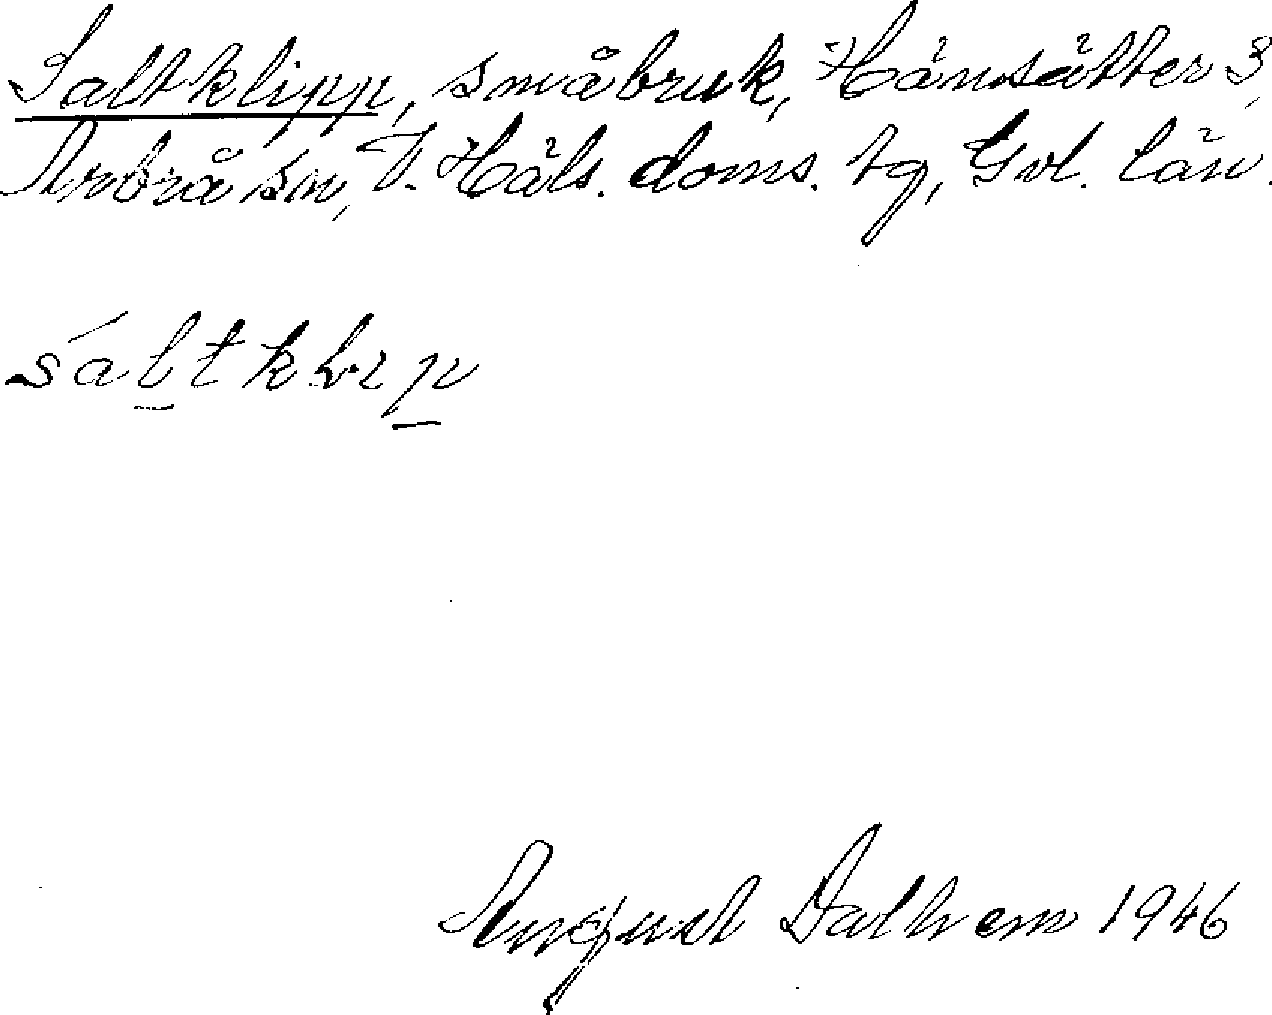 Saltklipp, småbruk, Hänsätter 3,
Arbrå sn, V. Häls. doms. tg, Gvl. län.
saltklip
August Dalhem 1946